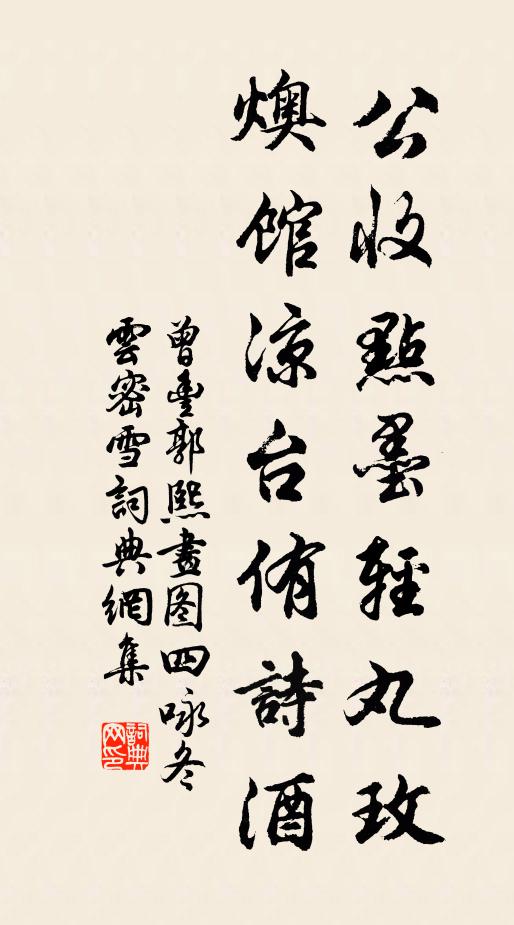 公收點墨輕丸玫
燠館凉台侑詩酒
曾豐郭熙畫图四咏冬
雲密雪詞典網集
詞典网印